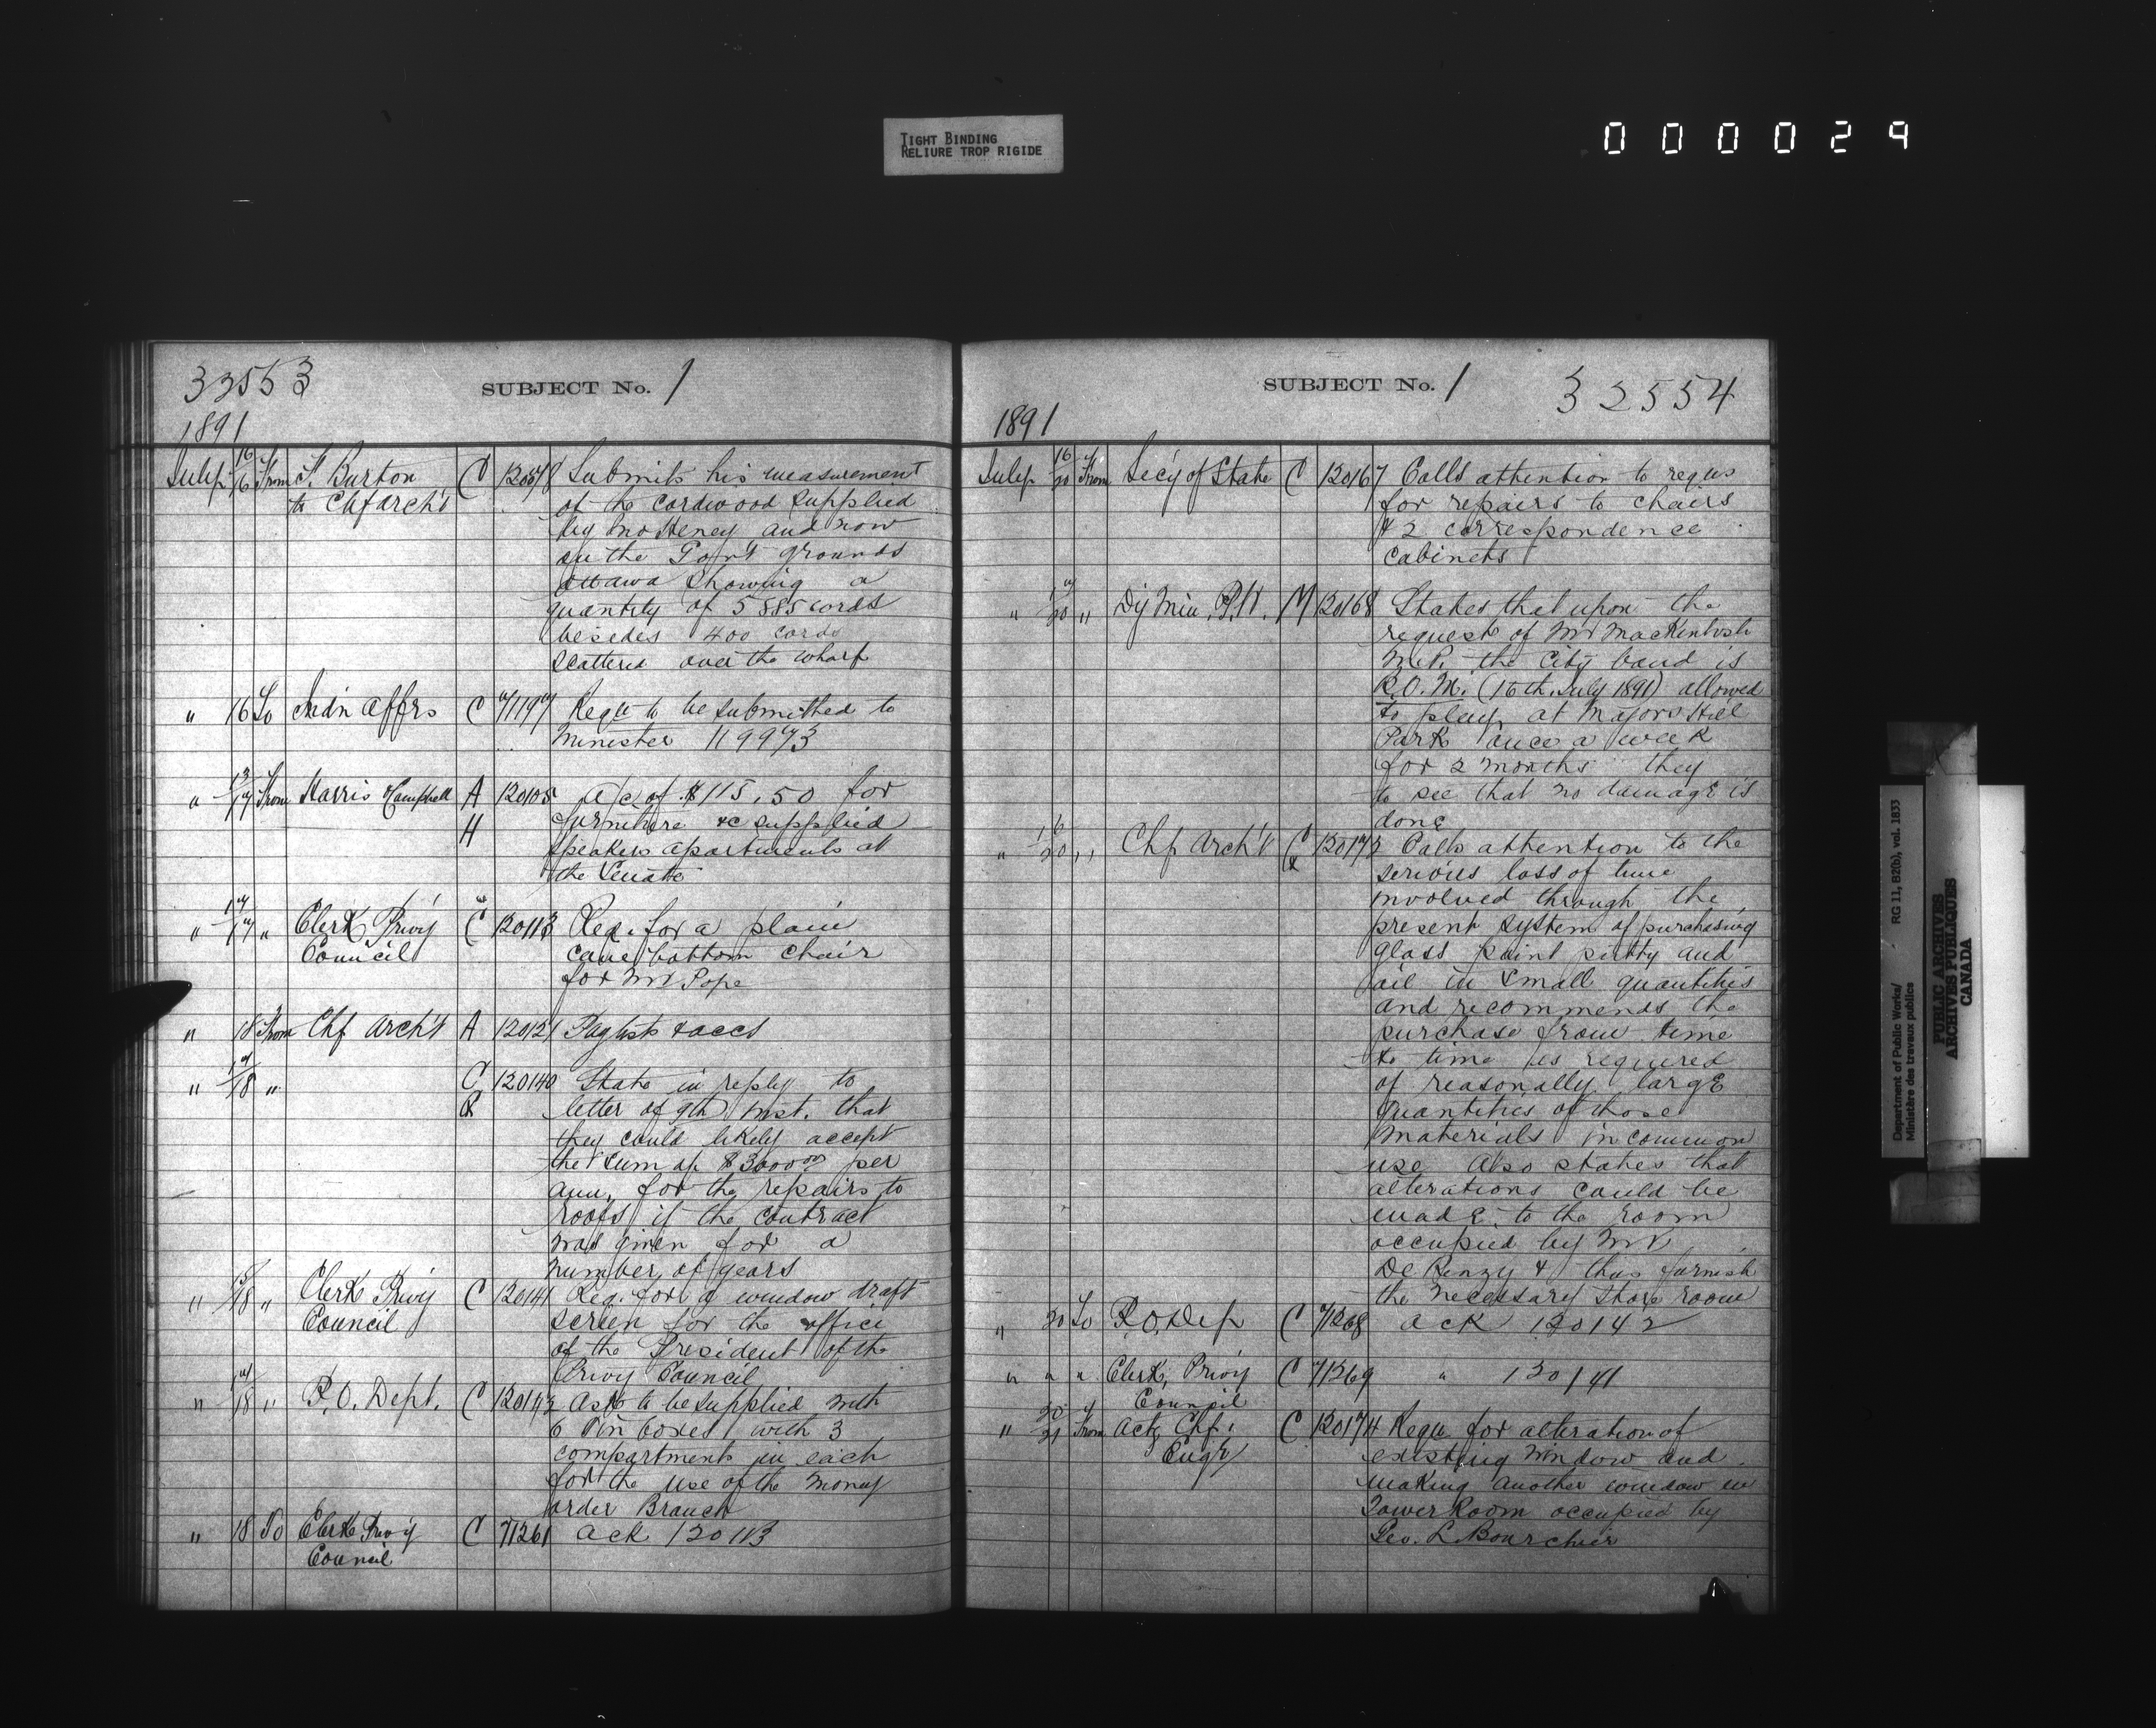 TIGHT BINDING
RELIURE TROP RIGIDE
000029
33553 SUBJECT No. 1
1891
July 16/16 From F. Burton C 12057 Submits his measurement
to Chf Arch't of the cordwood supplied
by Jno Heney and now
on the Gov't grounds
Ottawa Showing a
quantity of 5885 cords
besides 400 cords
scattered over the wharf
" 16 To Indn Affrs C 71197 Requ to be submitted to
Minister 119973
" 13/17 From Harris & Campbell A 120105 a/c of $115.50 for
H furniture &c supplied
Speakers apartments at
the Senate
" 17/17 " Clerk Privy C 120113 Req. for a plain
Council cane bottom chair
for Mr Pope
" 18 From Chf Arch't A 120121 Paylists & accs
" 17/18 " C 120140 State in reply to
R letter of 9th inst. that
they could likely accept
the sum of $3000.00 per
ann. for the repairs to
roofs if the contract
was given for a
number of years
" /18 " Clerk Privy C 120141 Req. for a window draft
Council screen for the office
of the President of the
Privy Council
" 17/18 " P.O. Dept. C 120142 Ask to be supplied with
6 Tin boxes with 3
compartments in each
for the use of the Money
order Branch
" 18 To Clerk Privy C 71261 Ack 120113
Council
SUBJECT No. 1 32554
1891
July 16/20 From Secy of State C 120167 Calls attention to reqns
for repairs to chairs
& 2 correspondence
cabinets
" 17/20 " Dy Min. P.W. M 120168 States that upon the
request of Mr Mackintosh
M.P. the City band is
R.O.M. (16th July 1891) allowed
to play at Majors Hill
Park once a week
for 2 months they
to see that no damage is
done
" 16/20 " Chf Arch't C 120172 Calls attention to the
R serious loss of time
involved through the
present system of purchasing
glass paint putty and
oil in small quantities
and recommends the
purchase from time
to time as required
of reasonally large
quantities of those
materials in common
use. Also states that
alterations could be
made to the room
occupied by Mr
De Renzy & thus furnish
the necessary store room
" 20 To P.O. Dep C 71268 ack 120142
" " " Clerk Privy C 71269 " 120141
Council
" 20/21 From Act. Chf. C 120174 Requ for alteration of
Engr existing window and
making another window in
Tower Room occupied by
Geo. L Bourchier
Department of Public Works/ RG 11, B2(b), vol. 1833
Ministère des travaux publics
PUBLIC ARCHIVES
ARCHIVES PUBLIQUES
CANADA